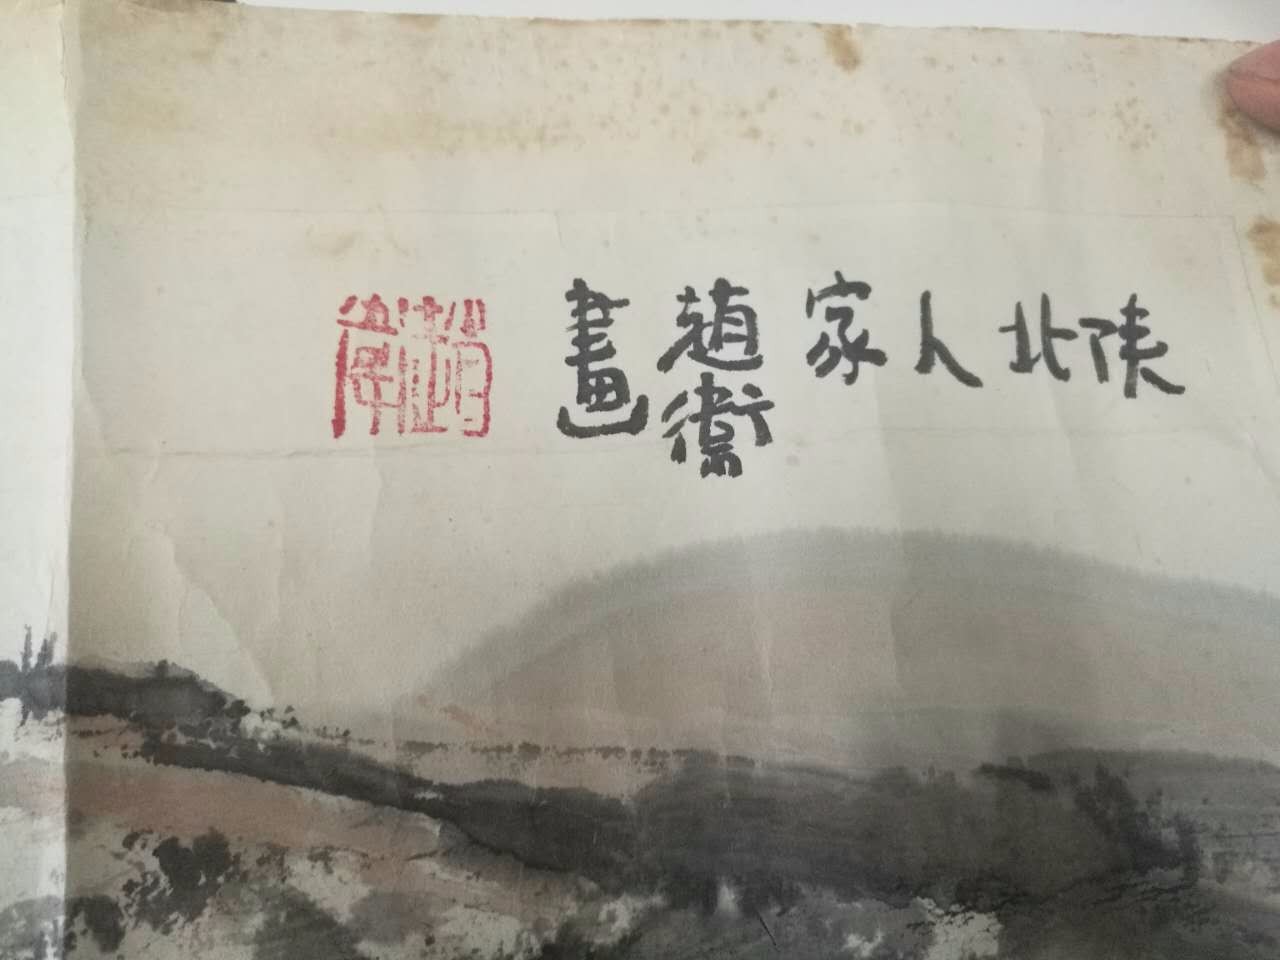 陕北人家
趙衛
畫
趙衛